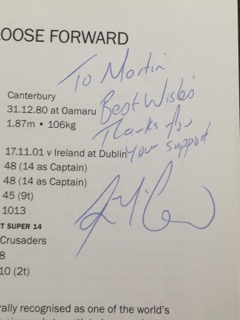 OOSE FORWARD
To Martin
Best Wishes
Thanks for
Your support
Canterbury
31.12.80 at Oamaru
1.87m • 106kg
17.11.01 v Ireland at Dublin
48 (14 as Captain)
48 (14 as Captain)
45 (9t)
1013
T SUPER 14
Crusaders
8
10 (2t)
rally recognised as one of the world's